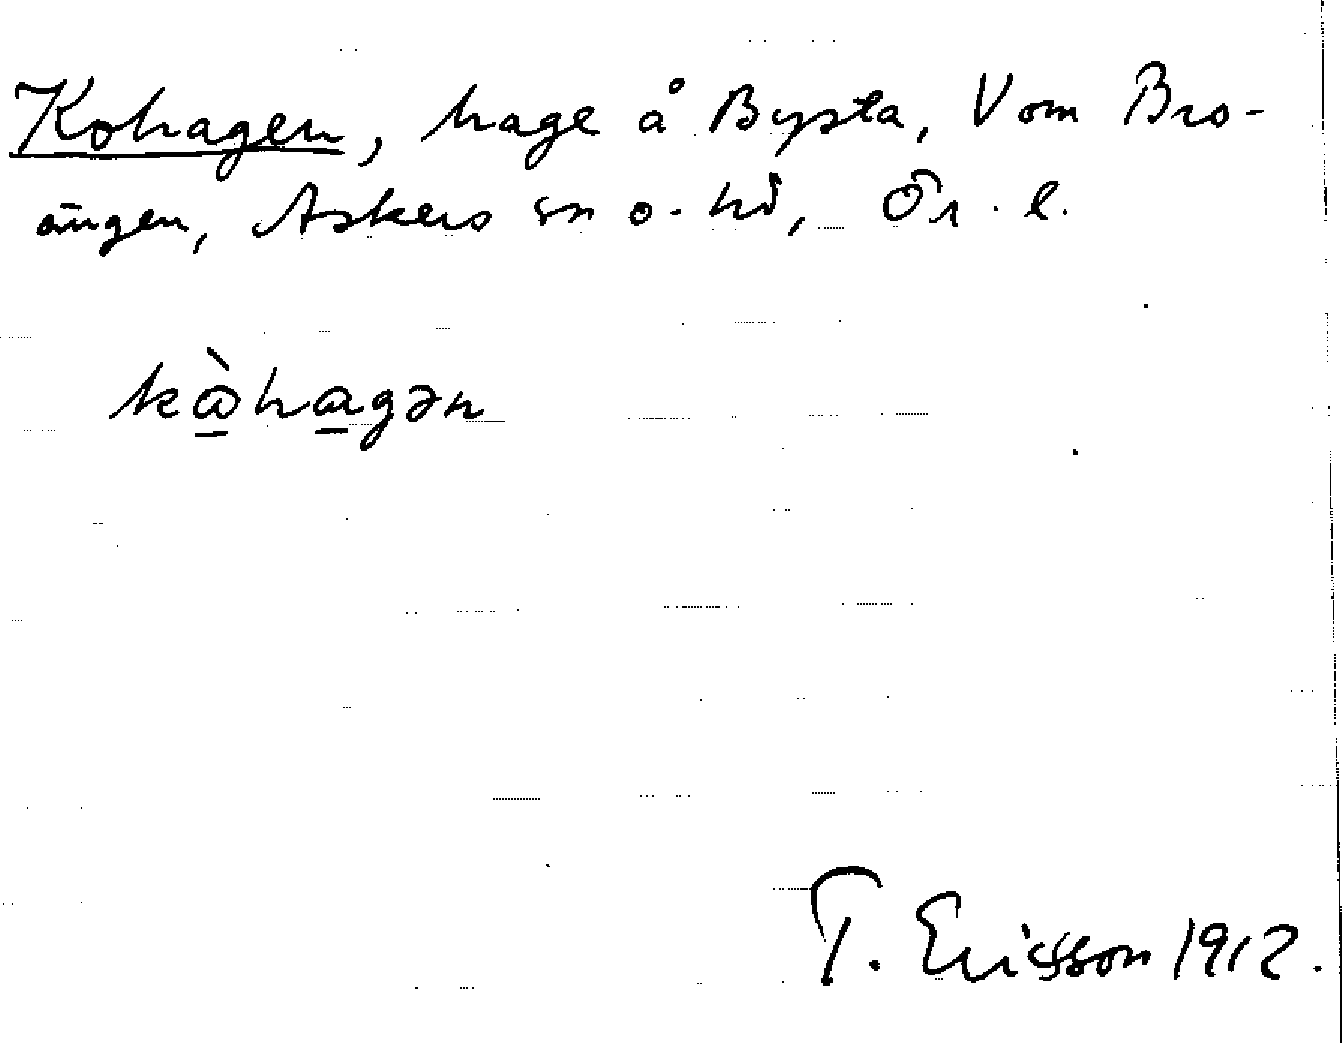 Kohagen, hage å Bysta, V om Bro-
ängen, Askers sn o. hd, Ör. l.
kὼhagən
T. Ericsson 1912.